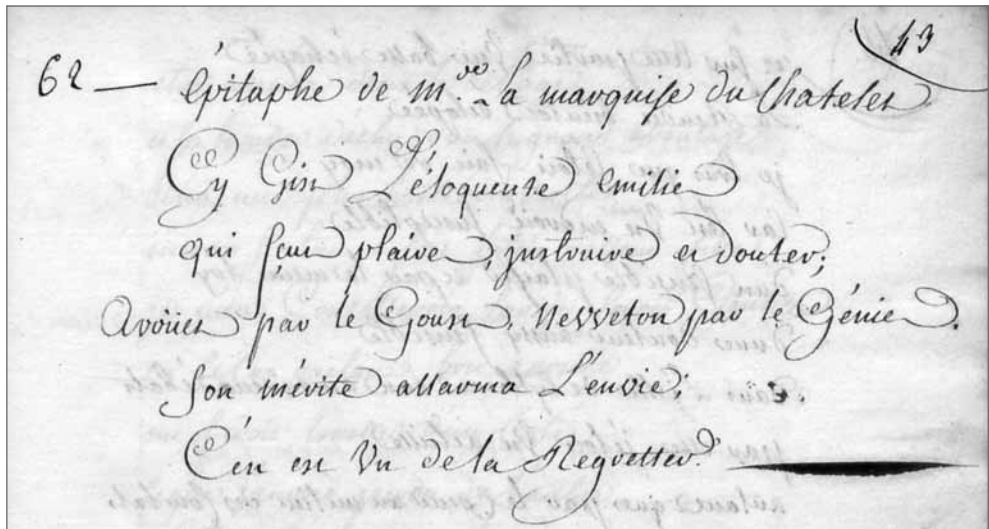 43
62 — Épitaphe de M.de la marquise du Chatelet
Cy Gist L'éloquente emilie
qui sceut plaire, instruire et douter;
par le Goust, Nevveton par le Génie.
son mérite allarma L'envie;
C'en est Un de la Regretter.